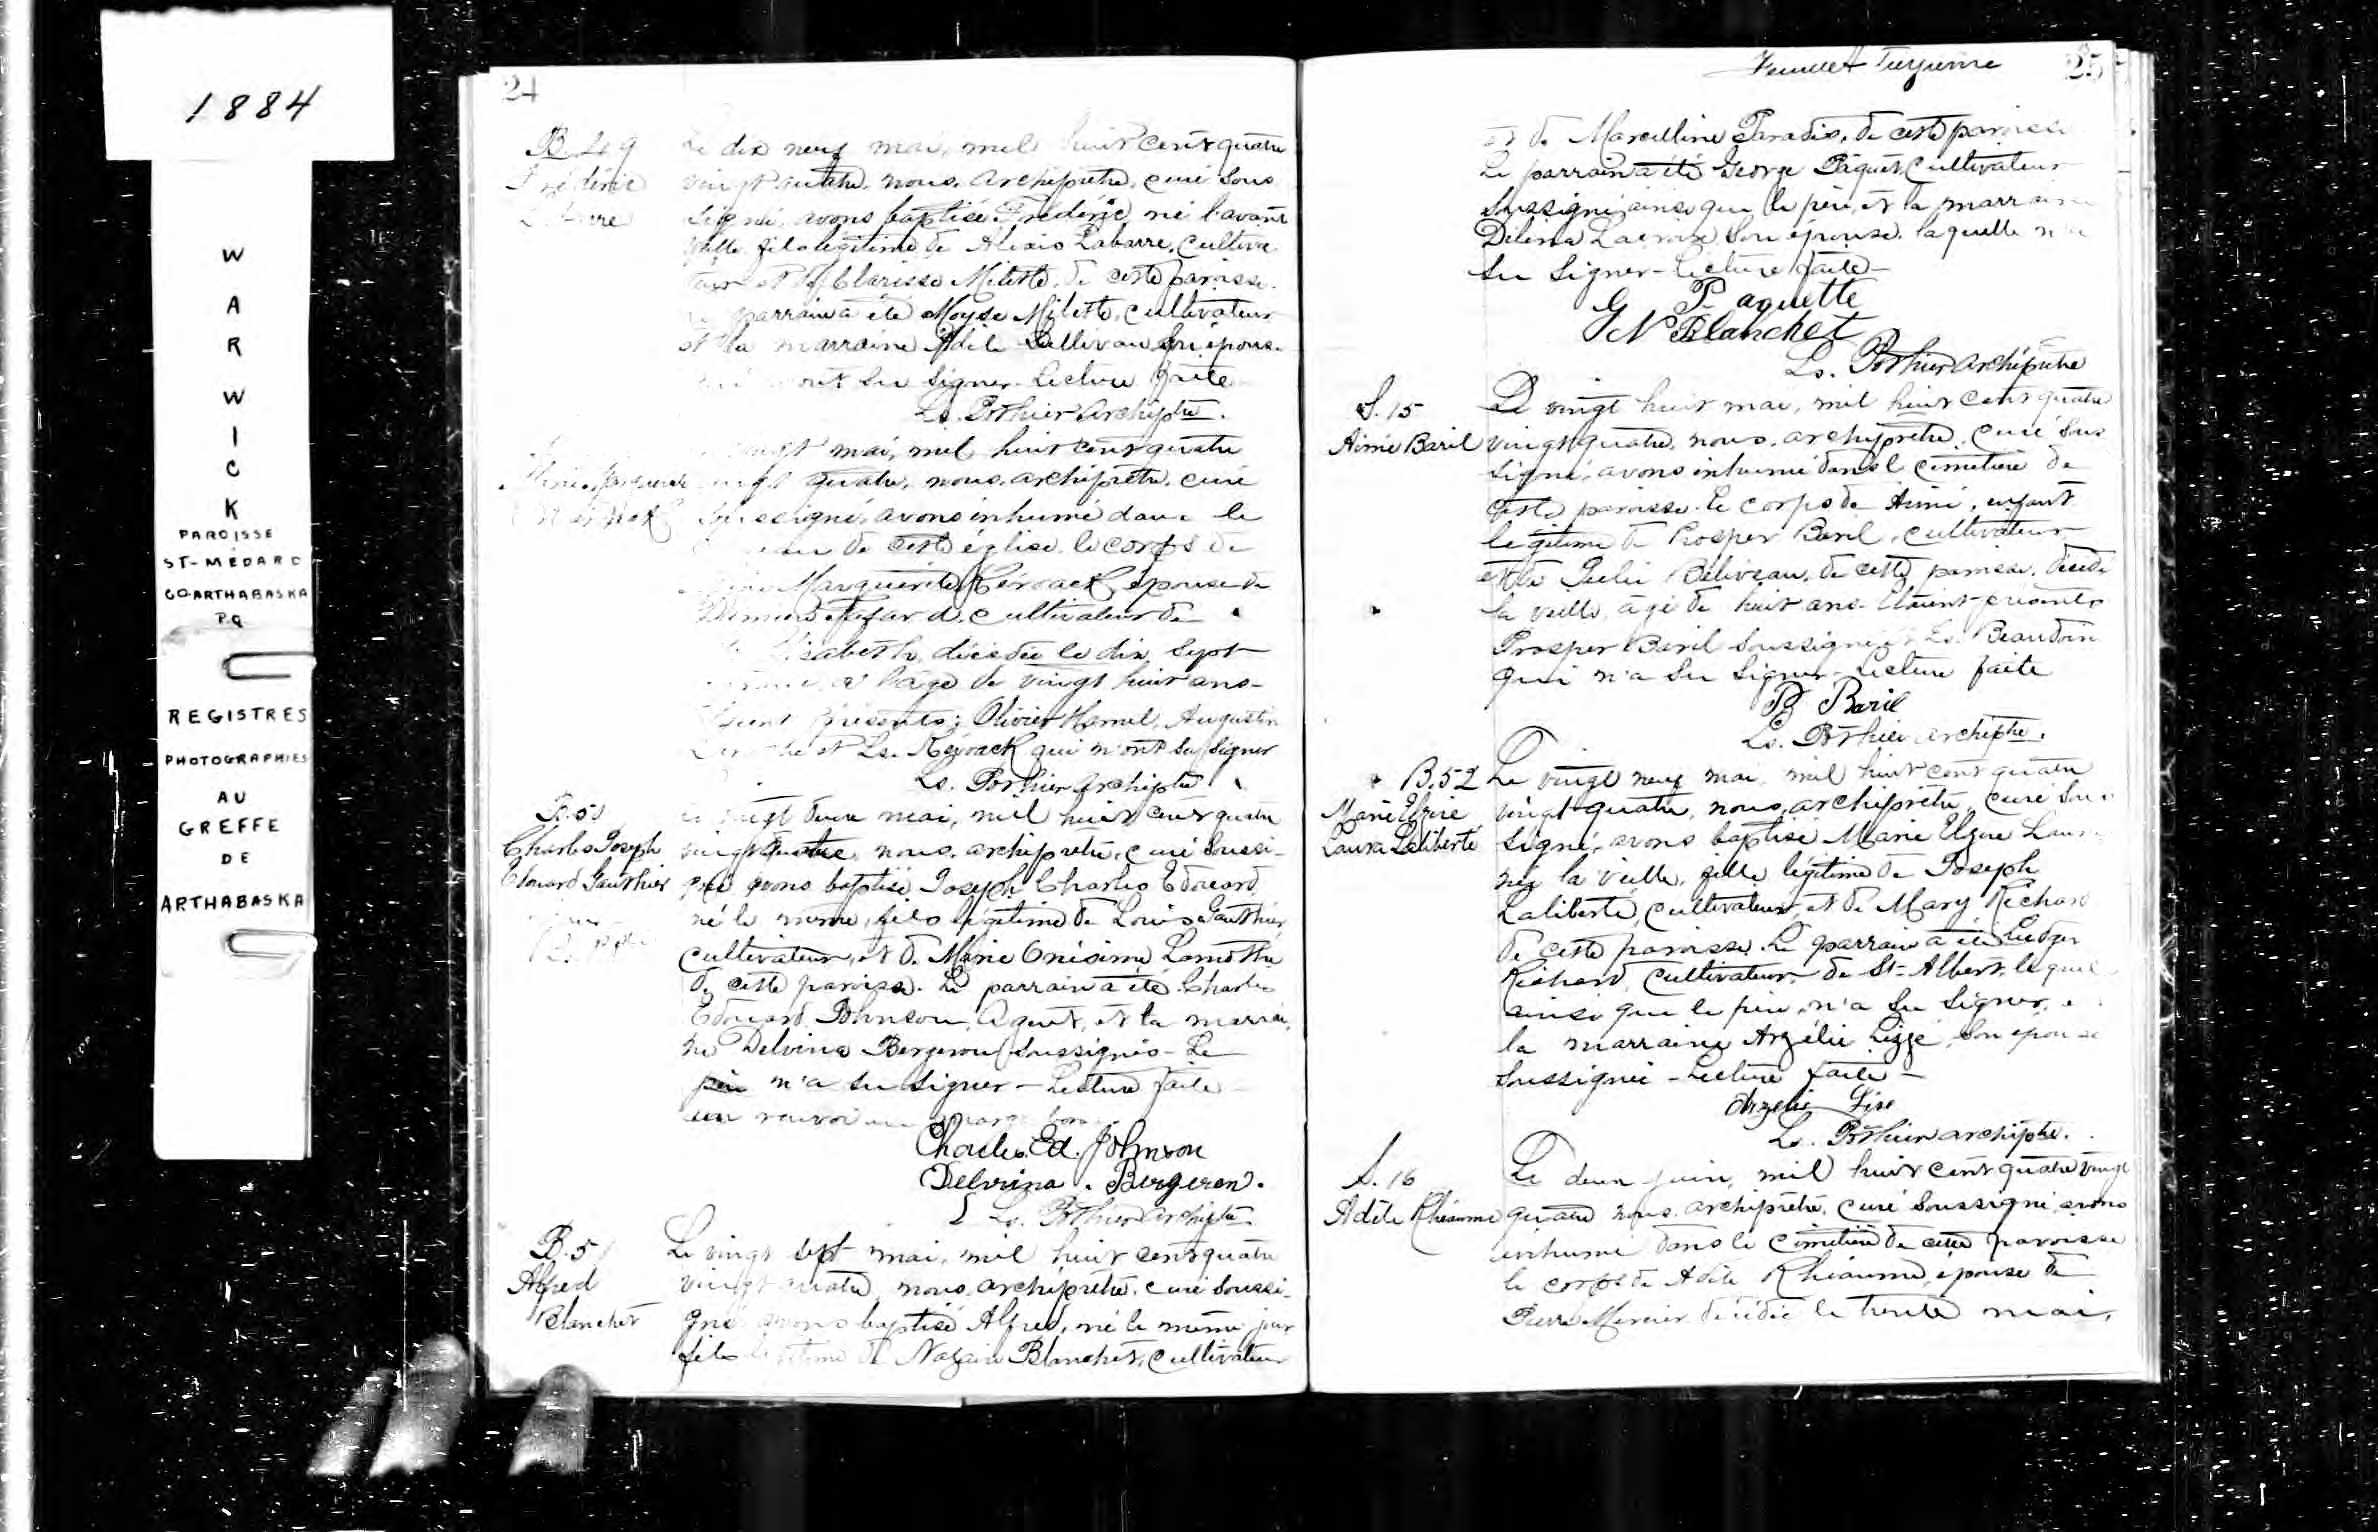 1884
WARWICK
PAROISSE
ST-MÉDARD
CO-ARTHABASKA
P.Q
REGISTRES
PHOTOGRAPHIES
AU
GREFFE
DE
ARTHABASKA
24
B.
Frédéric
Le dix neuf mai, mil huit cent quatre
vingt quatre, nous, archiprêtre, curé sous
signé, avons baptisé Frédéric né l'avant
veille fils légitime de Alexis Labarre, cultiva
teur et de Clarisse Milette, de cette paroisse.
parrain a été Moyse Milette, cultivateur
et la marraine Adèle Sullivan son épouse
ont su signer. Lecture faite
Ls. Pothier Archiptre.
vingt mai, mil huit cent quatre
vingt quatre, nous, archiprêtre, curé
soussigné, avons inhumé dans le
de cette église le corps de
Marguerite Kéroack épouse de
cultivateur de
Elisabeth, décédée le dix sept
à l'âge de vingt huit ans-
présents: Olivier Hamel, Augustin
et Ls. Kéroack qui n'ont su signer
Ls. Pothier Archiptre
B. 50
Charles Joseph
Edouard Gauthier
vingt deux mai, mil huit cent quatre
vingt quatre, nous, archiprêtre, curé soussi-
gné avons baptisé Joseph Charles Edouard
né le même, fils légitime de Louis Gauthier
cultivateur, et de Marie Onésime Lamothe
de cette paroisse. Le parrain a été Charles
Edouard Johnson, Agent, et la marrai
ne Delvina Bergeron soussignés - Le
père n'a su signer - Lecture faite -
un renvoi en marge bon
Charles. Ed. Johnson
Delvina. Bergeron.
Ls. Pothier Archiptre
B. 51
Alfred
Blanchet
Le vingt sept mai, mil huit cent quatre
vingt quatre, nous, archiprêtre, curé soussi-
gné avons baptisé Alfred, né le même jour
fils légitime de Nazaire Blanchet, cultivateur
25
et de Marcelline Paradis, de cette paroisse
Le parrain a été George Pâquet, cultivateur
soussigné ainsi que le père, et la marraine
Delima Lacroix, son épouse, laquelle n'a
su signer - Lecture faite -
G Paquette
N Blanchet
Ls. Pothier archiprêtre
S. 15
Aimé Baril
Le vingt huit mai, mil huit cent quatre
vingt quatre, nous, archiprêtre, curé sous
signé, avons inhumé dans le cimetière de
cette paroisse le corps de Aimé, enfant
légitime de Prosper Baril, cultivateur
et de Julie Béliveau, de cette paroisse, décédé
la veille, âgé de huit ans. Etaient présents
Prosper Baril soussigné et Ls. Beaudoin
qui n'a su signer - Lecture faite
P Baril
Ls. Pothier archiptre.
B. 52
Marie Elzire
Laura Laliberté
Le vingt neuf mai mil huit cent quatre
vingt quatre, nous, archiprêtre, curé sous
signé, avons baptisé Marie Elzire Laura
née la veille, fille légitime de Joseph
Laliberté, cultivateur, et de Mary Richard
de cette paroisse. Le parrain a été Ludger
Richard, cultivateur de St-Albert, lequel
ainsi que le père, n'a su signer,
la marraine Arzélie Lizé, son épouse
soussignée - Lecture faite -
Arzelie Lise
Ls. Pothier archiptre.
S. 16
Adèle Rhéaume
Le deux juin, mil huit cent quatre vingt
quatre nous, archiprêtre, curé soussigné, avons
inhumé dans le cimetière de cette paroisse
le corps de Adèle Rhéaume, épouse de
Pierre Mercier décédée le trente mai,